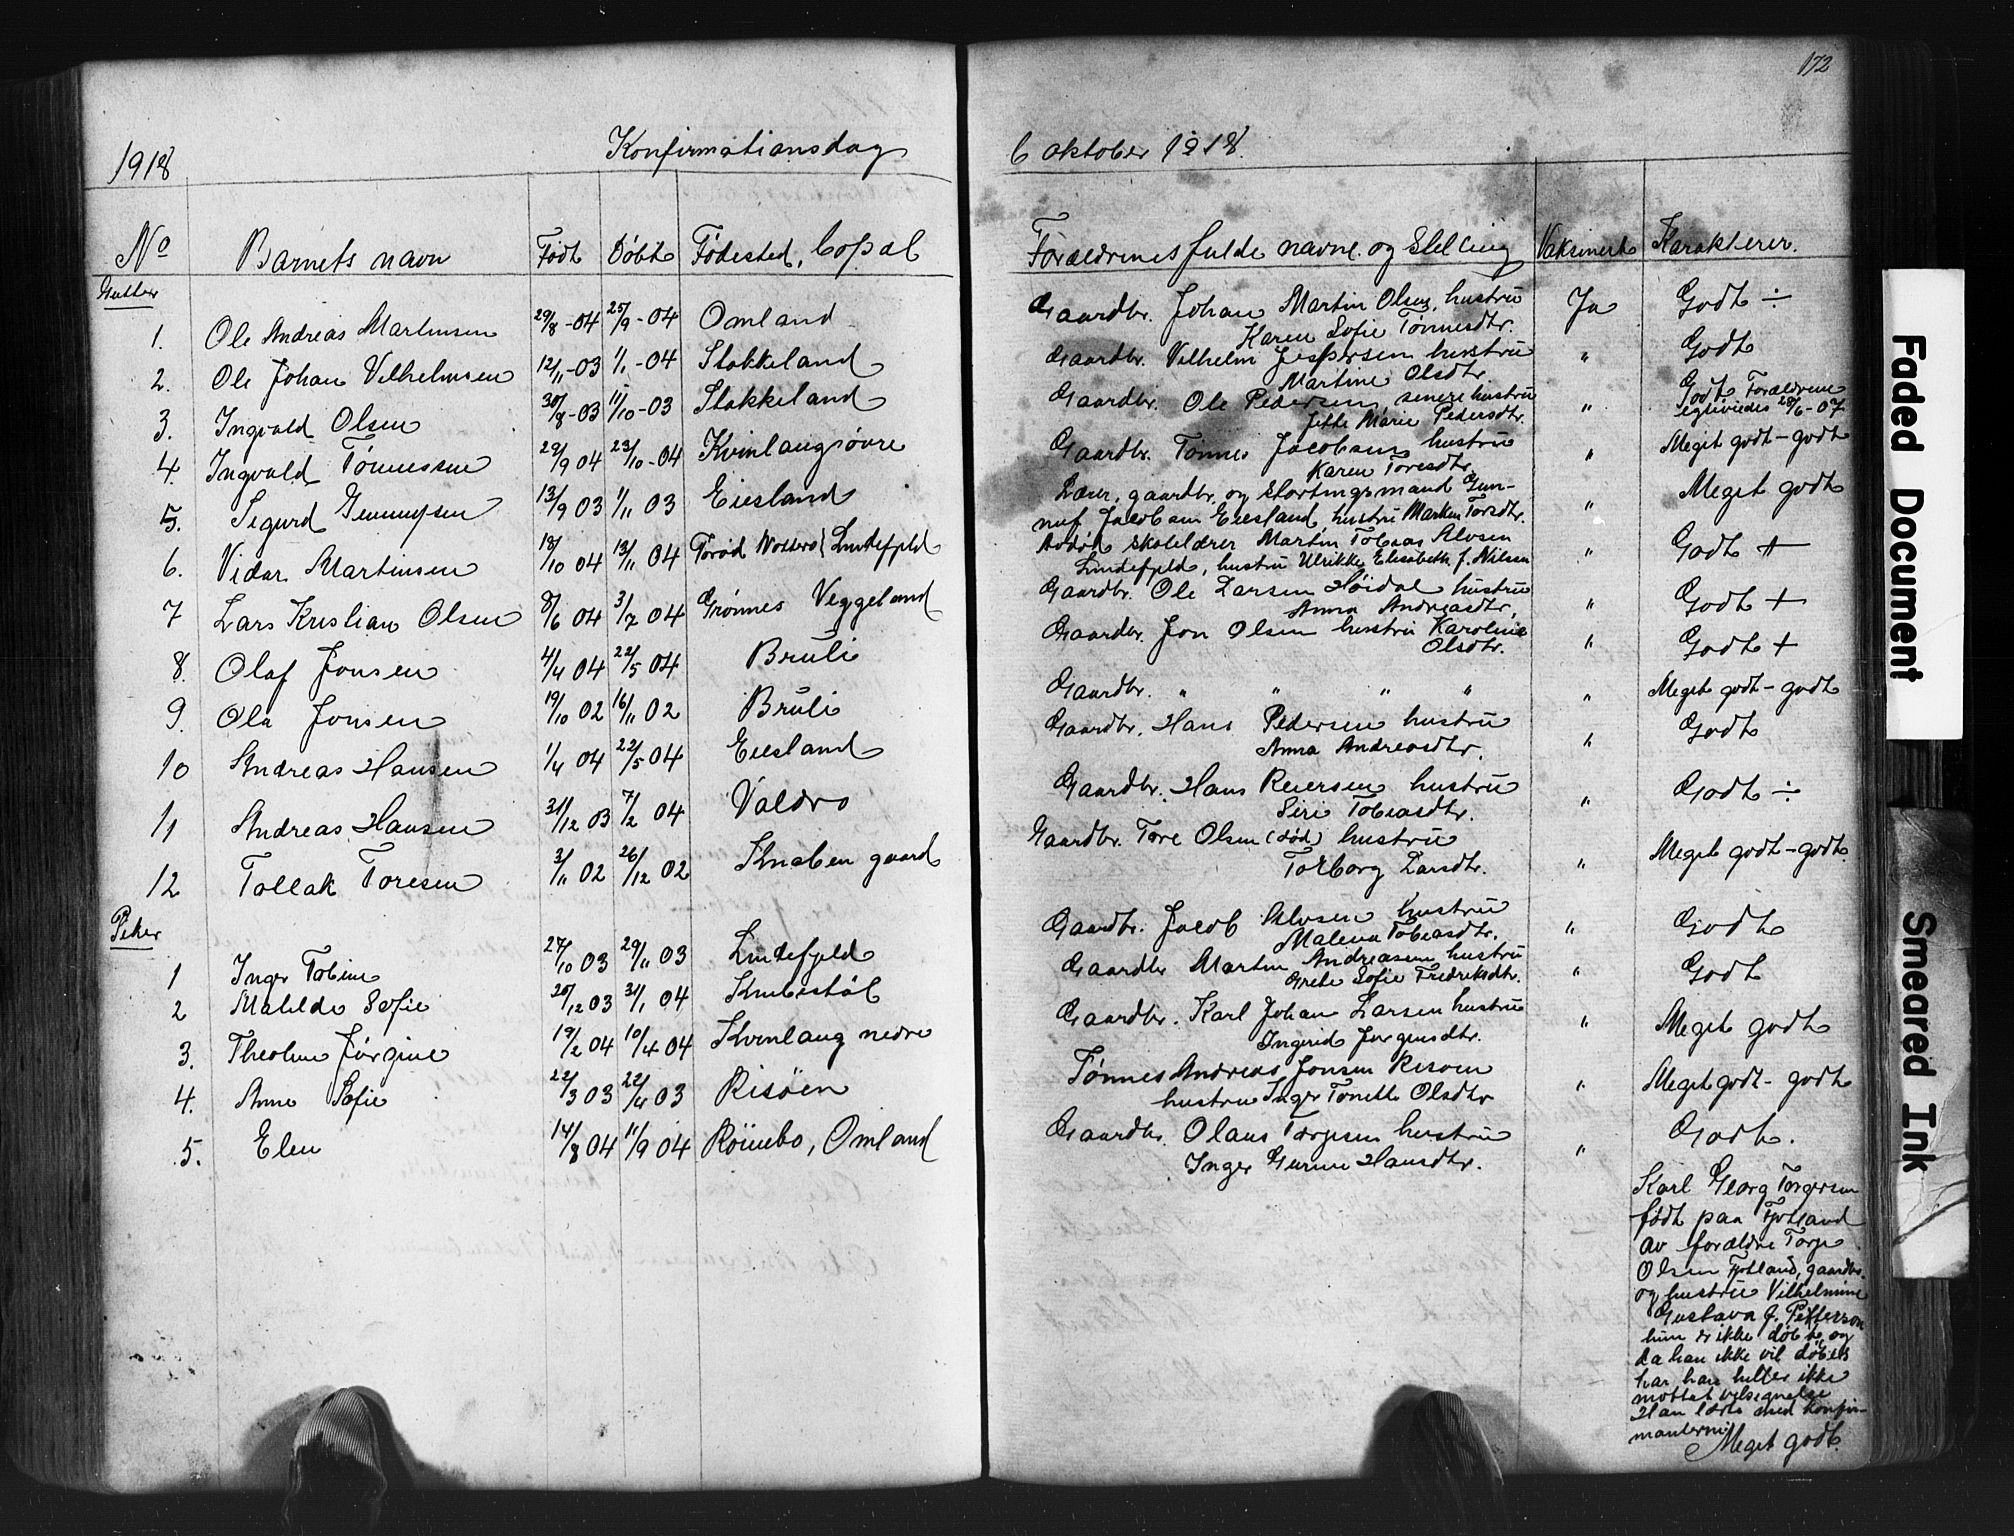 172
1918 Konfirmationsdag 6 oktober 1918.
No Barnets navn Født Døbt Fødested, Bopæl Forældrenes fulde navne og stilling Vaksinert Karakterer.
Gutter
1. Ole Andreas Martinsen 29/8-04 25/9-04 Omland Gaardbr. Johan Martin Olsen, hustru Ja Godt ÷
Karen Sofie Tønnesdtr.
2. Ole Johan Vilhelmsen 12/11-03 1/1-04 Stakkeland Gaardbr. Vilhelm Jespersen hustru " Godt
Martine Olsdtr.
3. Ingvald Olsen 30/8-03 11/10-03 Stakkeland Gaardbr. Ole Pedersen, senere hustru " Godt Forældrene
Jette Marie Pedersdtr. egtiviedes 28/6-07
4. Ingvald Tønnessen 29/9 04 23/10-04 Kvinlaugsøvre Gaardbr. Tønnes Jacobsen hustru " Meget godt-godt
Karen Toresdtr.
5. Sigurd Gunnufsen 13/9 03 1/11 03 Eiesland Lærer, gaardbr. og stortingsmand Gun- " Meget godt
nuf Jacobsen Eiesland, hustru Marken Torsdtr.
6. Vidar Martinsen 18/10 04 13/11 04 Lindefjeld skolelærer Martin Tobias Alvsen " Godt
Lindefjeld, hustru Ulrikke Elisabeth f. Nilsen
7 Lars Kristian Olsen 8/6 04 3/7 04 Grønnes Veggeland Gaardbr. Ole Larsen Høidal hustru " Godt +
Anna Andreasdtr.
8. Olaf Jonsen 4/4 04 22/5 04 Bruli Gaardbr. Jon Olsen hustru Karoline " Godt +
Olsdtr.
9. Ola Jonsen 19/10 02 16/11 02 Bruli Gaardbr. " " " " " Meget godt-godt
10 Andreas Hansen 1/4 04 22/5 04 Eiesland Gaardbr. Hans Pedersen hustru " Godt
Anna Andreasdtr.
11 Andreas Hansen 31/12 03 7/2 04 Valdro Gaardbr. Hans Reiersen hustru " Godt ÷
Siri Tobiasdtr.
12 Tollak Toresen 3/11 02 26/12 02 Knaben gaard Gaardbr. Tore Olsen (død) hustru " Meget godt-godt.
Torborg Larsdtr.
Piker
1 Inger Tobine 27/10 03 29/11 03 Lindefjeld Gaardbr. Jacob Alvsen hustru " Godt
Malena Tobiasdtr.
2 Matilde Sofie 20/12 03 31/1 04 Knibestøl Gaardbr Martin Andreasen hustru " Godt
Grete Sofie Fredriksdtr.
3. Theoline Jørgine 19/2 04 10/4 04 Kvinlaug nedre Gaardbr. Karl Johan Larsen hustru " Meget godt
Ingerid Jørgensdtr.
4. Anne Sofie 22/3 03 22/4 03 Risøen Tønnes Andreas Jonsen Risøen " Meget godt-godt
hustru Inger Tonette Olsdtr
5. Elen 14/8 04 11/9 04 Røinebo, Omland Gaardbr. Olaus Torjesen hustru " Godt.
Inger Gurine Hansdtr.
Karl Georg Torgersen
født paa Fjotland
av forældre Torje
Olsen Fjotland, gaardbr.
og hustru Vilhelmine
Gustava f. Petterson
hun er ikke døbt, og
da han ikke vil døbes
har han heller ikke
mottat velsignelse
Han læste med konfir-
manterne
Meget godt.
Faded Document
Smeared Ink